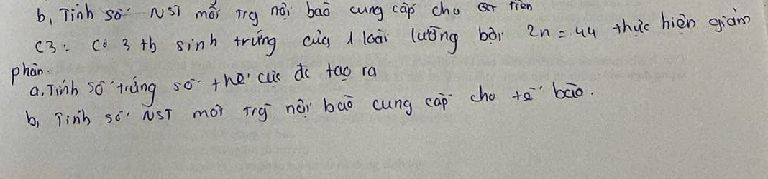 b, Tính số NST mới Trg nội bào cung cấp cho tiến
C3: Có 3 tb sinh trứng của 1 loài lưỡng bội 2n = 44 thực hiện giảm
phân.
a, Tính số trứng số thể cực đc tạo ra
b, Tính số NST môi Trg nội bào cung cấp cho tế bào.